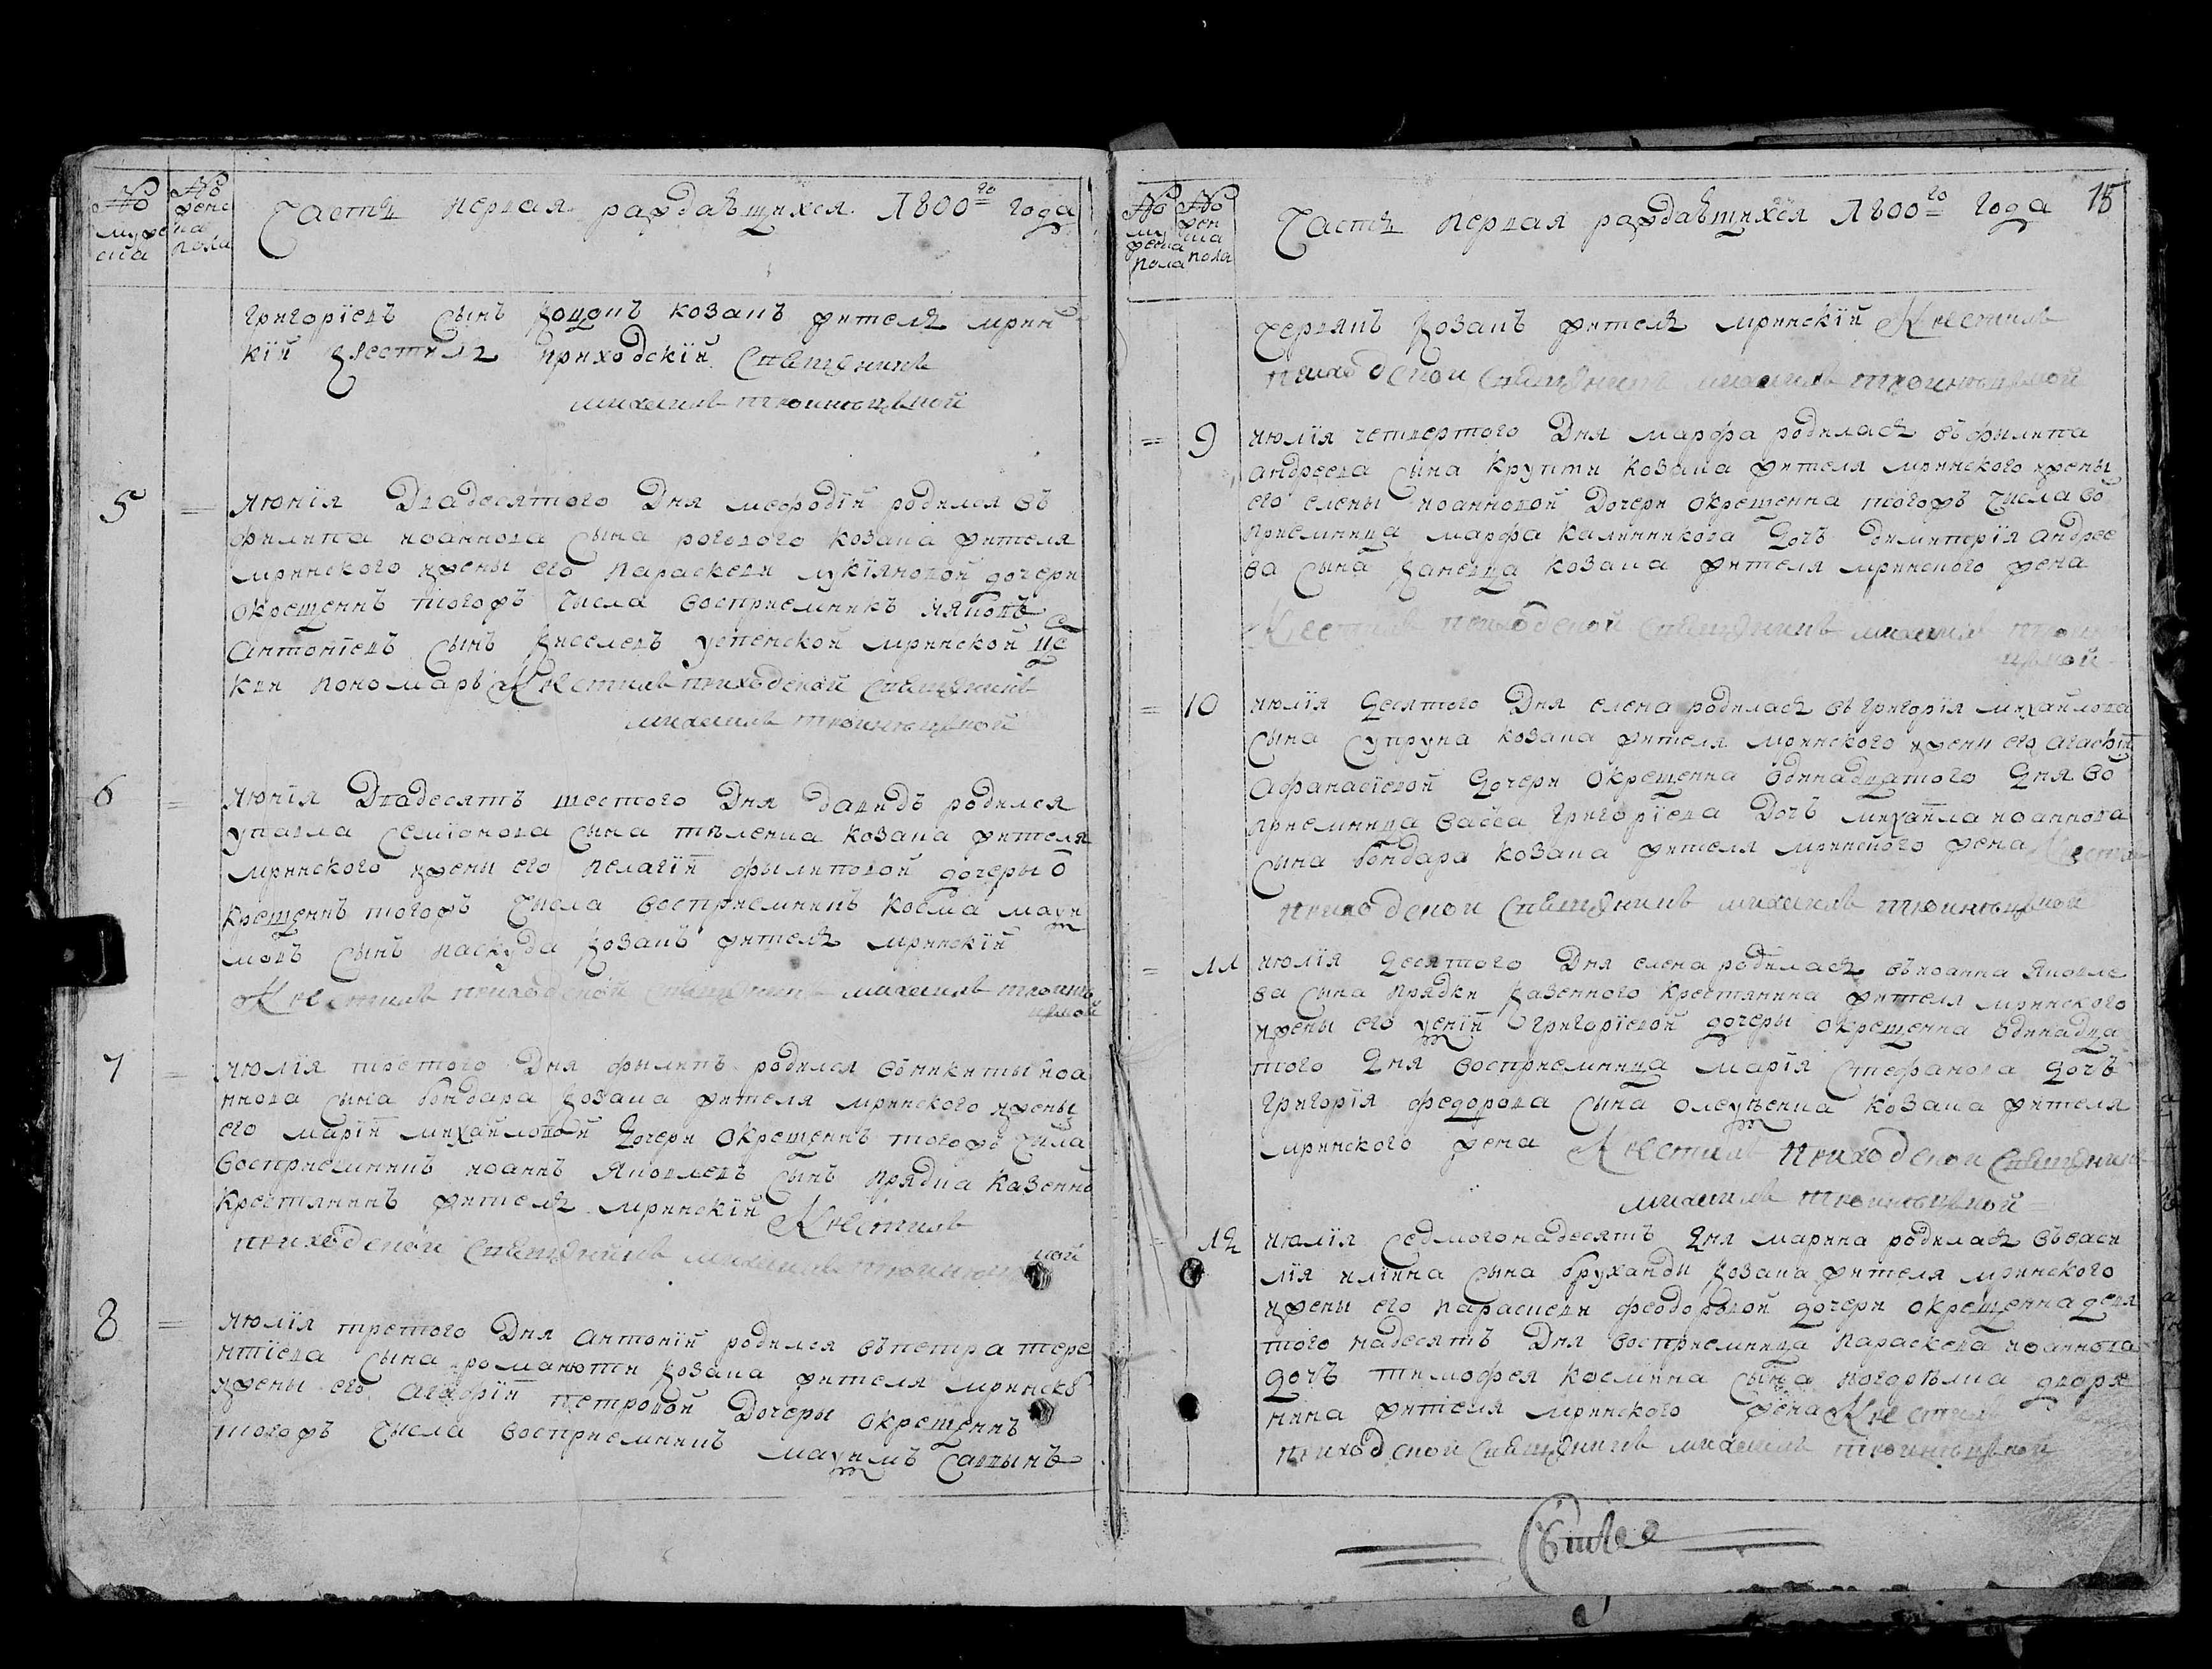 № мужеска
№ женска пола
Часть первая раждаъшихся 1800го года
григорїевъ сынъ козакъ жителъ мрин
кїй крестилъ приходскїй священникъ
михаилъ
5 = июнїя двадесятого дня мефодїй родился въ
филипа иоаннова сына рогового козака жителя
мринского ижены его параскеви лукїяновой дочери
окрещеннъ тогожъ числа восприемникъ ияковъ
антонїевъ сынъ киселевъ успенской мринской це
кви пономаръ Крестилъ приходской священникъ
михаилъ
6 = июнїя двадесятъ шестого дня давидъ родился
упавла семїонова сына козака жителя
мринского ижены его пелагїи филиповой дочеры о
крещеннъ тогожъ числа восприемникъ косма маѯи
мовъ сынъ паскуда козакъ жителъ мринскїй
Крестилъ приходской священникъ михаилъ
7 = июлїя третого дня филипъ родился въникиты иоа
ннова сына бондара козака жителя мринского ижены
его марїи михайловой дочери окрещеннъ тогожъ чила
восприемникъ иоаннъ яковлевъ сынъ прядка казенно
крестянинъ жителъ мринскїй Крестилъ
приходской священникъ михаилъ
8 = июлїя третого дня антонїй родился въпетра тере
нтїева сына романюти козака жителя мринско
ижены его агафїи петровой дочеры окрещеннъ
тогожъ числа восприемникъ маѯимъ саввынъ
№ мужеска пола
№ женска пола
Часть первая раждаъшихся 1800го года
15
черпакъ козакъ жителъ мринскїй Крестилъ
приходской священникъ михаилъ
= 9 июлїя четвертого дня марфа родилась въфилипа
андреева сына крупти козака жителя мринского ижены
его елены иоанновой дочери окрещенна тогожъ числа во
приемница марфа калинникова дочъ димитрїя андрее
ва сына ганевца козака жителя мринского жена
Крестилъ приходской священникъ михаилъ
= 10 июлїя десятого дня елена родилась въ григорїя михайлова
сына супруна козака жителя мринского ижены его агафїи
афанасїевой дочери окрещенна одинадцатого дня во
приемница васса григорїева дочъ михаила иоаннова
сына бондара козака жителя мринского жена Крестил
приходской священникъ михаилъ
= 11 июлїя десятого дня елена родилась въиоанна яковле
ва сына прядки казенного крестянина жителя мринского
ижены его ѯенїи григорїевой дочеры окрещенна одинадца
того дня восприемница марїя стефанова дочъ
григорїя федорова сына олеѯѣенка козака жителя
мринского жена Крестилъ приходской священникъ
михаилъ
= 12 июлїя седмогонадесятъ дня марина родилась въваси
лїя илїина сына бруханди козака жителя мринского
ижены его параскеви феодоровой дочери окрещенна девя
того надесятъ дня восприемница параскева иоаннова
дочъ тимофея космина сына погорѣлка дворя
нина жителя мринского жена Крестил
приходской священникъ михаилъ